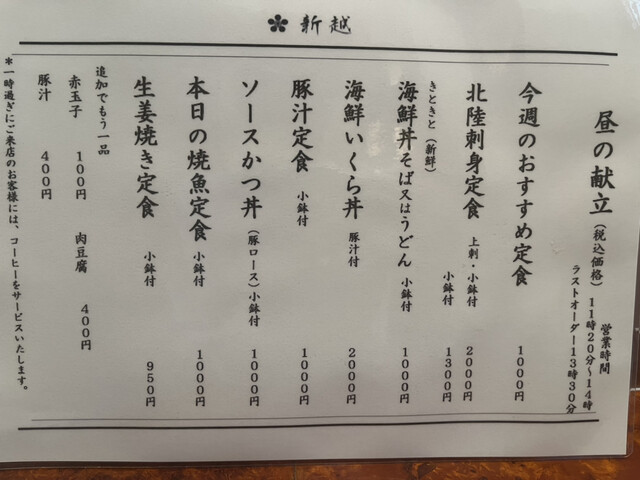 新越
昼の献立（税込価格）
営業時間
11時20分～14時
ラストオーダー13時30分
今週のおすすめ定食 1000円
北陸刺身定食 上刺・小鉢付 2000円
きときと（新鮮） 小鉢付 1300円
海鮮丼そば又はうどん 小鉢付 1000円
海鮮いくら丼 豚汁付 2000円
豚汁定食 小鉢付 1000円
ソースかつ丼（豚ロース）小鉢付 1000円
本日の焼魚定食 小鉢付 1000円
生姜焼き定食 小鉢付 950円
追加でもう一品
赤玉子 100円 肉豆腐 400円
豚汁 400円
*一時過ぎにご来店のお客様には、コーヒーをサービスいたします。